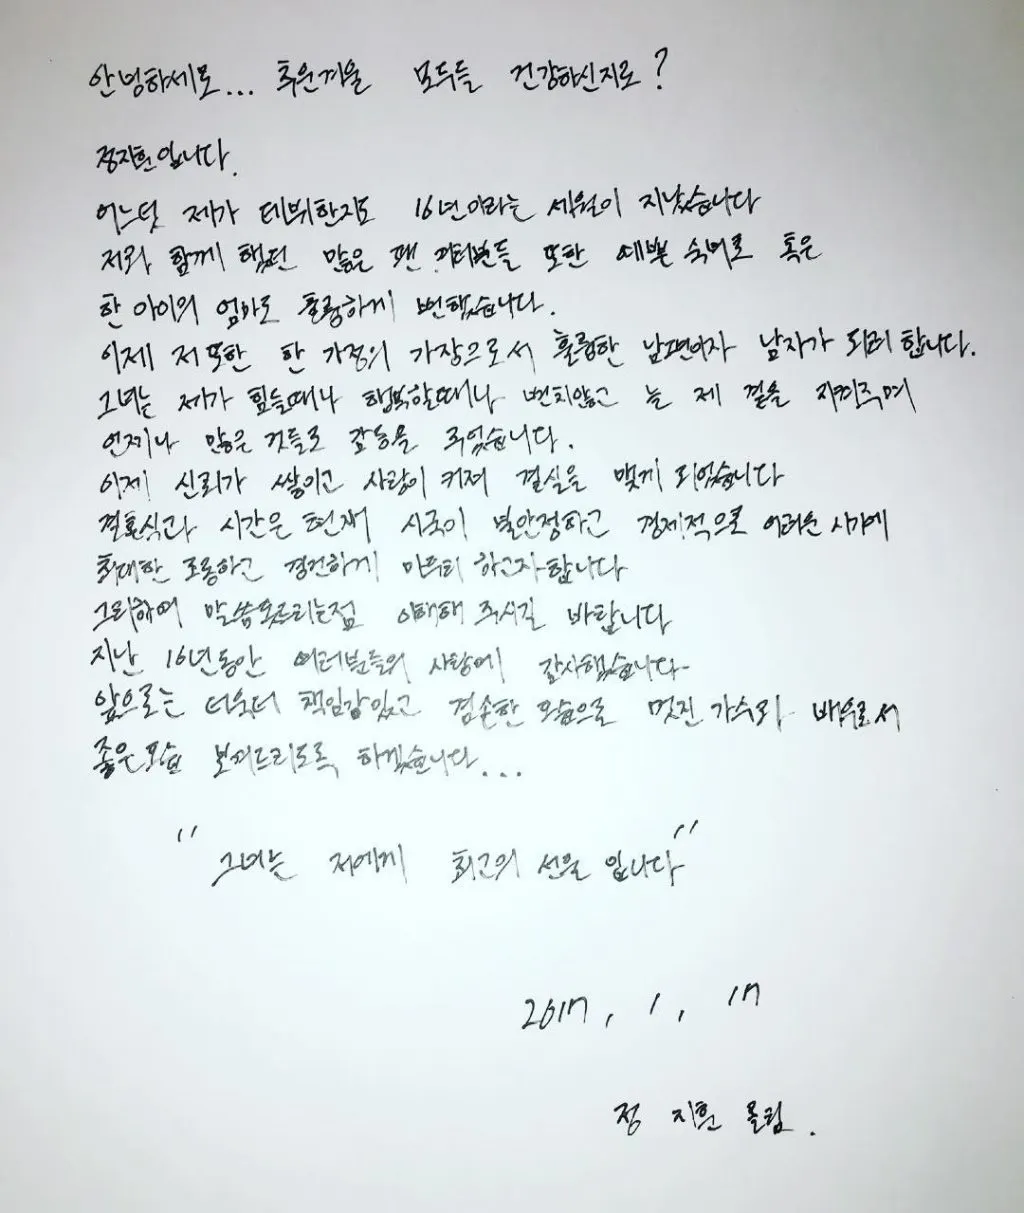 안녕하세요... 추운겨울 모두들 건강하신지요?
정지훈입니다.
어느덧 제가 데뷔한지도 16년이라는 세월이 지났습니다
저와 함께 했던 많은 팬 여러분들 또한 예쁜 숙녀로 혹은
한 아이의 엄마로 훌륭하게 변했습니다.
이제 저 또한 한 가정의 가장으로서 훌륭한 남편이자 남자가 되려 합니다.
그녀는 제가 힘들때나 행복할때나 변치않고 늘 제 곁을 지켜주며
언제나 많은 것들로 감동을 주었습니다.
이제 신뢰가 쌓이고 사랑이 커져 결실을 맺게 되었습니다
결혼식과 시간은 현재 시국이 불안정하고 경제적으로 어려운 시기에
최대한 조용하고 경건하게 마무리 하고자 합니다
그리하여 말씀못드리는점 이해해 주시길 바랍니다
지난 16년동안 여러분들의 사랑에 감사했습니다.
앞으로는 더욱더 책임감있고 겸손한 모습으로 멋진 가수와 배우로서
좋은모습 보여드리도록 하겠습니다...
"그녀는 저에게 최고의 선물 입니다"
2017, 1, 17
정 지훈 올림.